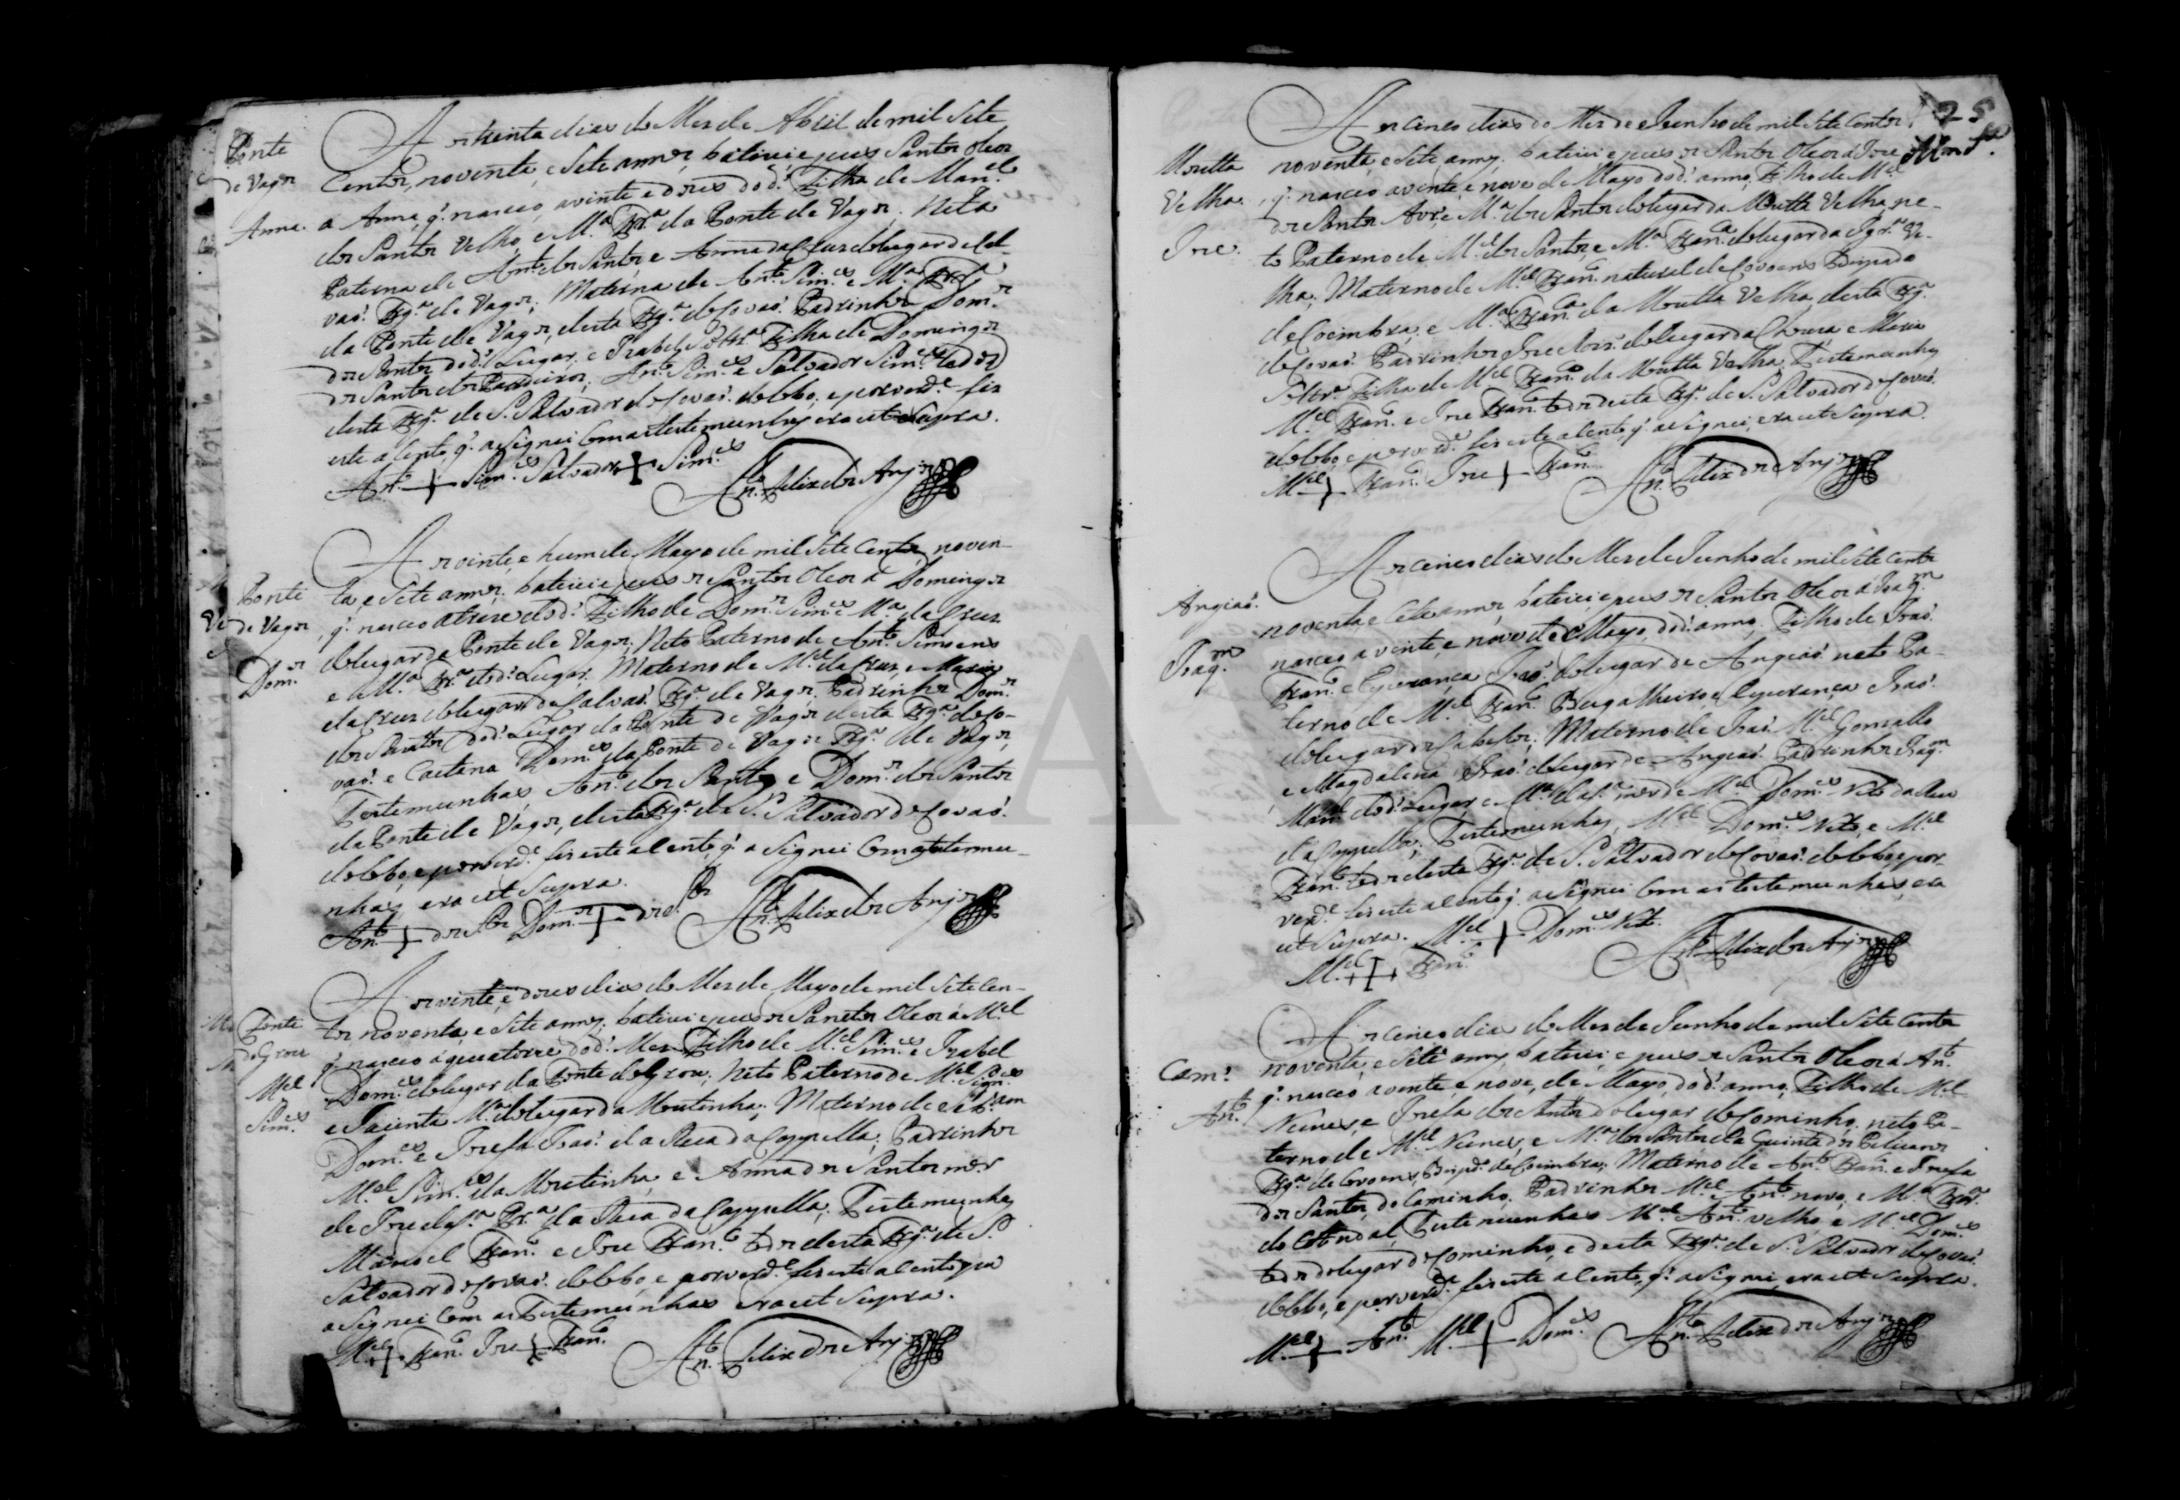 Ponte
de Vagos
Anna.
Aos trinta dias do Mes de Abril de mil Sete
Centos, noventa, e Sete annos, batizei e pus os Santos oleos
a Anna, q. nasceo, a vinte e dois do d.º Filha de Man.el
dos Santos Velho, e M.ª Fr.ª da Ponte de Vagos. Neta
Paterna de Ant.º dos Santos e Anna da Cruz do lugar de Cal-
vaó. Fg.ª de Vagos, Materna de Ant.º Sim.es e M.ª
da Ponte de Vagos, desta Fg.ª de Covaó. Padrinhos Dom.os
dos Santos do d.º Lugar, e Izabel Filha de Domingos
dos Santos dos Ant.º Sim.es e Salvador Sim.es todos
desta Fg.ª de S. Salvador de Covaó. do bbo, e por verd.e fiz
este asento, q. asignei Com as testemunhas era ut Supra.
Ant.º + Sim.es Salvador + Sim.es Ant.º Felix dos Anjos
Ponte
de Vagos
Dom.os
Aos vinte, e hum de Mayo de mil Sete Centos, noven-
ta, e Sete annos, batizei e pus os Santos Oleos a Domingos
q. nasceo a treze do d.º Filho de Dom.os Sim.es e M.ª da Cruz
do lugar da Ponte de Vagos, Neto Paterno de Ant.º Simoens
e de M.ª Fr.ª do d.º Lugar, Materno de M.el da Cruz, e Maria
da Cruz do lugar de Calvaó. Fg.ª de Vagos, Padrinhos Dom.os
dos Santos do d.º Lugar da Ponte de Vagos desta Fg.ª de Co-
vaó. e Caetana Dom.es da Ponte de Vagos Fg.ª de Vagos,
Testemunhas Ant.º dos Santos e Dom.os dos Santos
da Ponte de Vagos, desta Fg.ª de S. Salvador de Covaó.
do bbo, e por verd.e fiz este asento, q. asignei Com as testemu-
nhas, era ut Supra.
Ant.º + dos S.tos Dom.os + dos S.tos Ant.º Felix dos Anjos
Fonte
do Grou
M.el
Sim.es
Aos vinte, e dois dias do Mes de Mayo de mil Sete Cen-
tos noventa, e Sete annos, batizei e pus os Santos Oleos a M.el
q. nasceo a quatorze do d.º Mes Filho de M.el Sim.es e Izabel
Dom.es do lugar da Fonte do Grou, Neto Paterno de M.el Sim.es
e Jacinta M.ª do lugar da Moutinha, Materno de
Dom.es e Josefa Joaó. da da Cappella, Padrinhos
M.el Sim.es da Moutinha, e Anna dos Santos m.er
de Joze da Cappella, Testemunhas
Manoel Fran.co e Joze Fran.co todos desta Fg.ª de S.
Salvador de Covaó. do bbo, e por verd.e fiz este asento que
asignei Com as Testemunhas era ut Supra.
M.el + Fran.co Joze + Fran.co Ant.º Felix dos Anjos
25
Moutta
Velha.
Joze.
Aos cinco dias do Mes de Junho de mil Sete Centos,
noventa, e Sete annos, batizei e pus os Santos Oleos a Joze
q. nasceo a vinte, e nove de Mayo do d.º anno, Filho de M.el
dos Santos e M.ª dos Santos do lugar da Moutta Velha, ne-
to Paterno de M.el dos Santos, e M.ª Fran.ca do lugar da Ve-
lha, Materno de M.el Fran.co natural de Covoens Bispado
de Coimbra, e M.ª Fran.ca da Moutta Velha, desta Fg.ª
de Covaó. Padrinhos Joze do lugar da e Maria
Soltr.ª Filha de M.el Fran.co da Moutta Velha, Testemunhas
M.el Fran.co e Joze Fran.co todos desta Fg.ª de S. Salvador de Covaó.
do bbo, e por verd.e fiz este asento, q. asignei, era ut Supra.
M.el + Fran.co Joze + Fran.co Ant.º Felix dos Anjos
Angiaó.
Joaq.m
Aos cinco dias do Mes de Junho de mil Sete Centos
noventa e Sete annos, batizei, e pus os Santos Oleos a Joaq.m
nasceo a vinte, e nove de Mayo, do d.º anno, Filho de Joaó.
Fran.co e Esperança Joaó. do lugar de Angiaó. neto Pa-
terno de M.el Fran.co e Esperança Joaó.
do lugar de Materno de Joaó. M.el Gonsallo
e Magdalena Joaó. do lugar de Angiaó. Padrinhos Joaq.m
Man.el do d.º Lugar, e M.ª m.er de M.el Dom.es Neto da
da Cappella, Testemunhas, M.el Dom.es Neto, e M.el
Fran.co todos desta Fg.ª de S. Salvador de Covaó. do bbo, e por
verd.e fiz este asento q. asignei Com as testemunhas, era
ut Supra. M.el + Dom.es Neto.
M.el + Fran.co Ant.º Felix dos Anjos
Cam.º
Ant.º
Aos cinco dias do Mes de Junho de mil Sete Centos
noventa, e Sete annos, batizei, e pus os Santos Oleos a Ant.º
q. nasceo a vinte, e nove, de Mayo, do d.º anno, Filho de M.el
Nunes, e Josefa dos Santos do lugar do Cominho, neto Pa-
terno de M.el Nunes, e M.ª dos Santos da Quinta dos
Fg.ª de Covoens, Bisp.do de Coimbra, Materno de Ant.º Fran.co e Josefa
dos Santos, do Caminho, Padrinhos M.el Ant.º novo, e M.ª Fran.ca
do Testemunhas M.el Ant.º velho, e M.el Dom.es
todos do lugar do Cominho, e desta Fg.ª de S. Salvador de Covaó.
do bbo, e por verd.e fiz este asento, q. asignei, era ut Supra.
M.el + Ant.º M.el + Dom.es Ant.º Felix dos Anjos